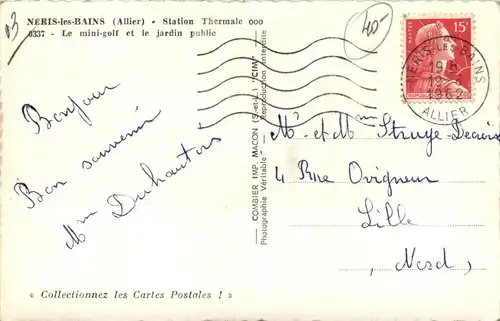 NERIS-les-BAINS (Allier) - Station Thermale ooo
6337 - Le mini-golf et le jardin public
03
40-
15F
NERIS-LES-BAINS
19 H
1962
ALLIER
COMBIER IMP. MACON (S.-et-L.) "CIM"
Photographie Véritable - Reproduction interdite
Bonjour
Bon souvenir
Mme Duhautois
Mr et Mme Struye Decroix
4 Rue Ovigneur
Lille
Nord)
« Collectionnez les Cartes Postales ! »